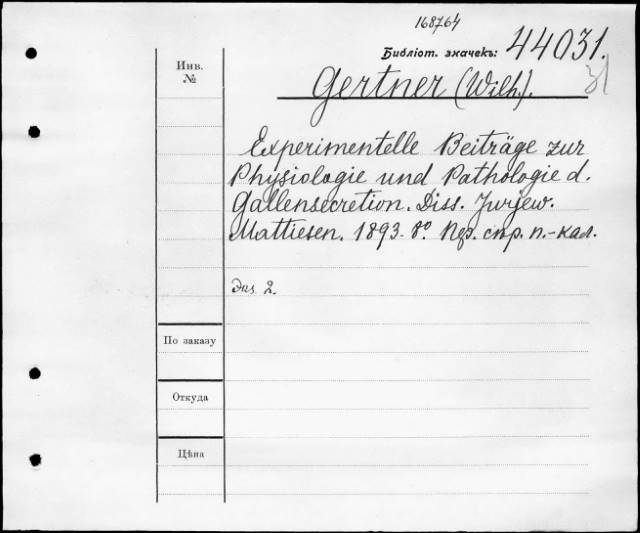 168764
Библіот. значекъ: 44031.
31
Инв.
№
Gertner (Wilh).
Experimentelle Beiträge zur
Physiologie und Pathologie d.
Gallensecretion. Diss. Jurjew.
Mattiesen. 1893. 8º. Пер. стр. п.-кал.
Экз. 2.
По заказу
Откуда
Цѣна